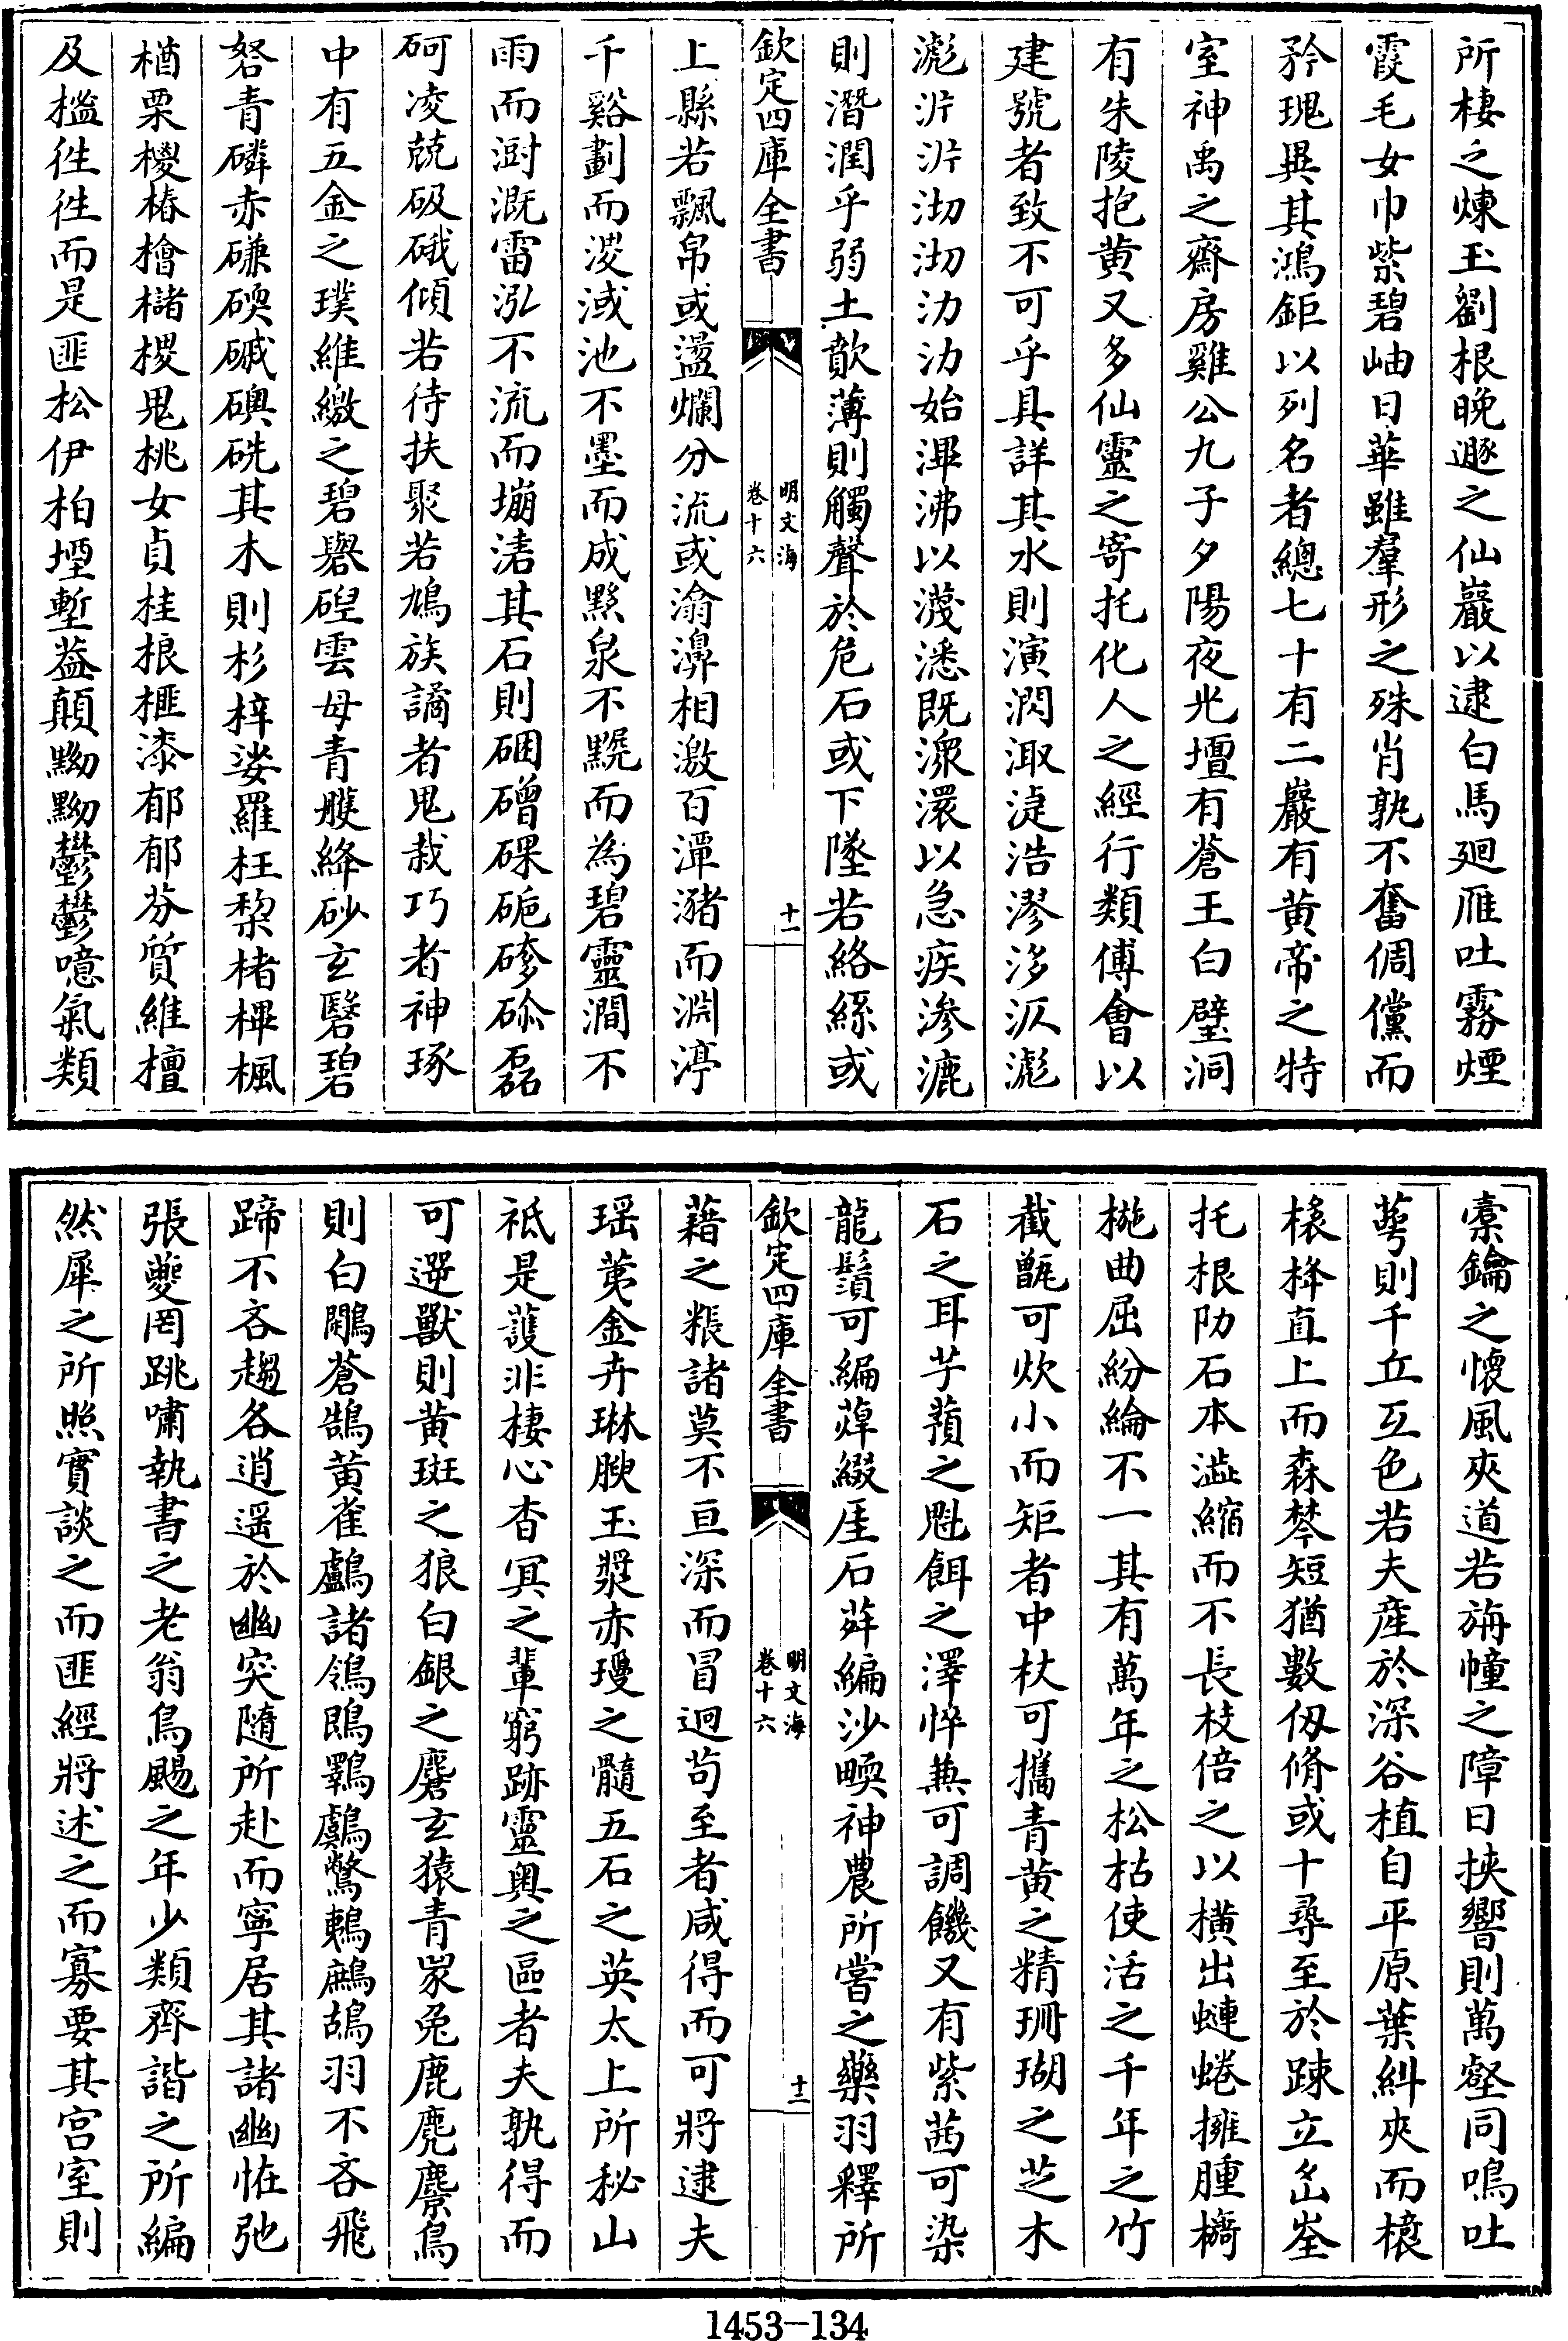 所棲之煉玉劉根晚遯之仙巖以逮白馬廻雁吐霧煙
霞毛女巾紫碧岫日華雖羣形之殊肖孰不奮倜儻而
矜瑰異其鴻鉅以列名者總七十有二巖有黄帝之特
室神禹之齋房雞公九子夕陽夜光壇有蒼王白璧洞
有朱陵抱黄又多仙靈之寄托化人之經行類傅會以
建號者致不可乎具詳其水則演㵎淈浩漻沴汳滮
滮沜沜沏沏泐泐始滭沸以濈濦既潨澴以急疾滲漉
則潛潤乎弱土歕薄則觸聲於危石或下墜若絡綵或
欽定四庫全書
明文海
卷十六
十一
上縣若飄帛或盪爛分流或瀹濞相激百潭瀦而淵渟
千谿劃而淩淢池不墨而成㸃泉不黥而為碧靈澗不
雨而澍溉雷泓不流而塴涾其石則硱磳磥硊磣碖磊
砢凌兢砐硪傾若待扶聚若鳩族譎者鬼栽巧者神琢
中有五金之璞維繳之碧礐碨雲母青雘絳砂玄礜碧
砮青磷赤磏碝磩磢硄其木則杉梓娑羅枉棃楮樿楓
楢栗㮨椿檜櫧㮨鬼桃女貞桂桹榧漆郁郁芬質維檀
及檻徃徃而是匪松伊柏堙塹葢顛黝黝鬱鬱噫氣類
橐鑰之懷風夾道若旃幢之障日挾響則萬壑同鳴吐
萼則千丘互色若夫産於深谷植自平原葉糾夾而檺
椽桻直上而森棽短猶數仭脩或十尋至於踈立屳崟
托根阞石本澁縮而不長枝倍之以横出蜨蜷擁腫橢
㭟曲屈紛綸不一其有萬年之松枯使活之千年之竹
截甑可炊小而矩者中杖可攜青黄之精珊瑚之芝木
石之耳芋蘋之魁餌之澤悴兼可調饑又有紫茜可染
龍鬚可編葏綴厓石荓編沙畹神農所嘗之藥羽釋所
欽定四庫全書
明文海
卷十六
十二
藉之粻諸莫不亘深而冒迥苟至者咸得而可將逮夫
瑶荑金卉琳腴玉漿赤璎之髓五石之英太上所秘山
祗是䕶非棲心杳冥之輩窮跡靈奥之區者夫孰得而
可遝獸則黄斑之狼白銀之麏玄猿青㒸兔鹿麂麖鳥
則白鷴蒼鵠黄雀鸕諸鴒鵖鸅鸆鷩鶇鷓鴣羽不吝飛
蹄不吝趨各逍遥於幽突隨所赴而寧居其諸幽恠弛
張夔罔跳嘯執書之老翁鳥䬍之年少類齊諧之所編
然犀之所照實談之而匪經將述之而寡要其宫室則
1453—134